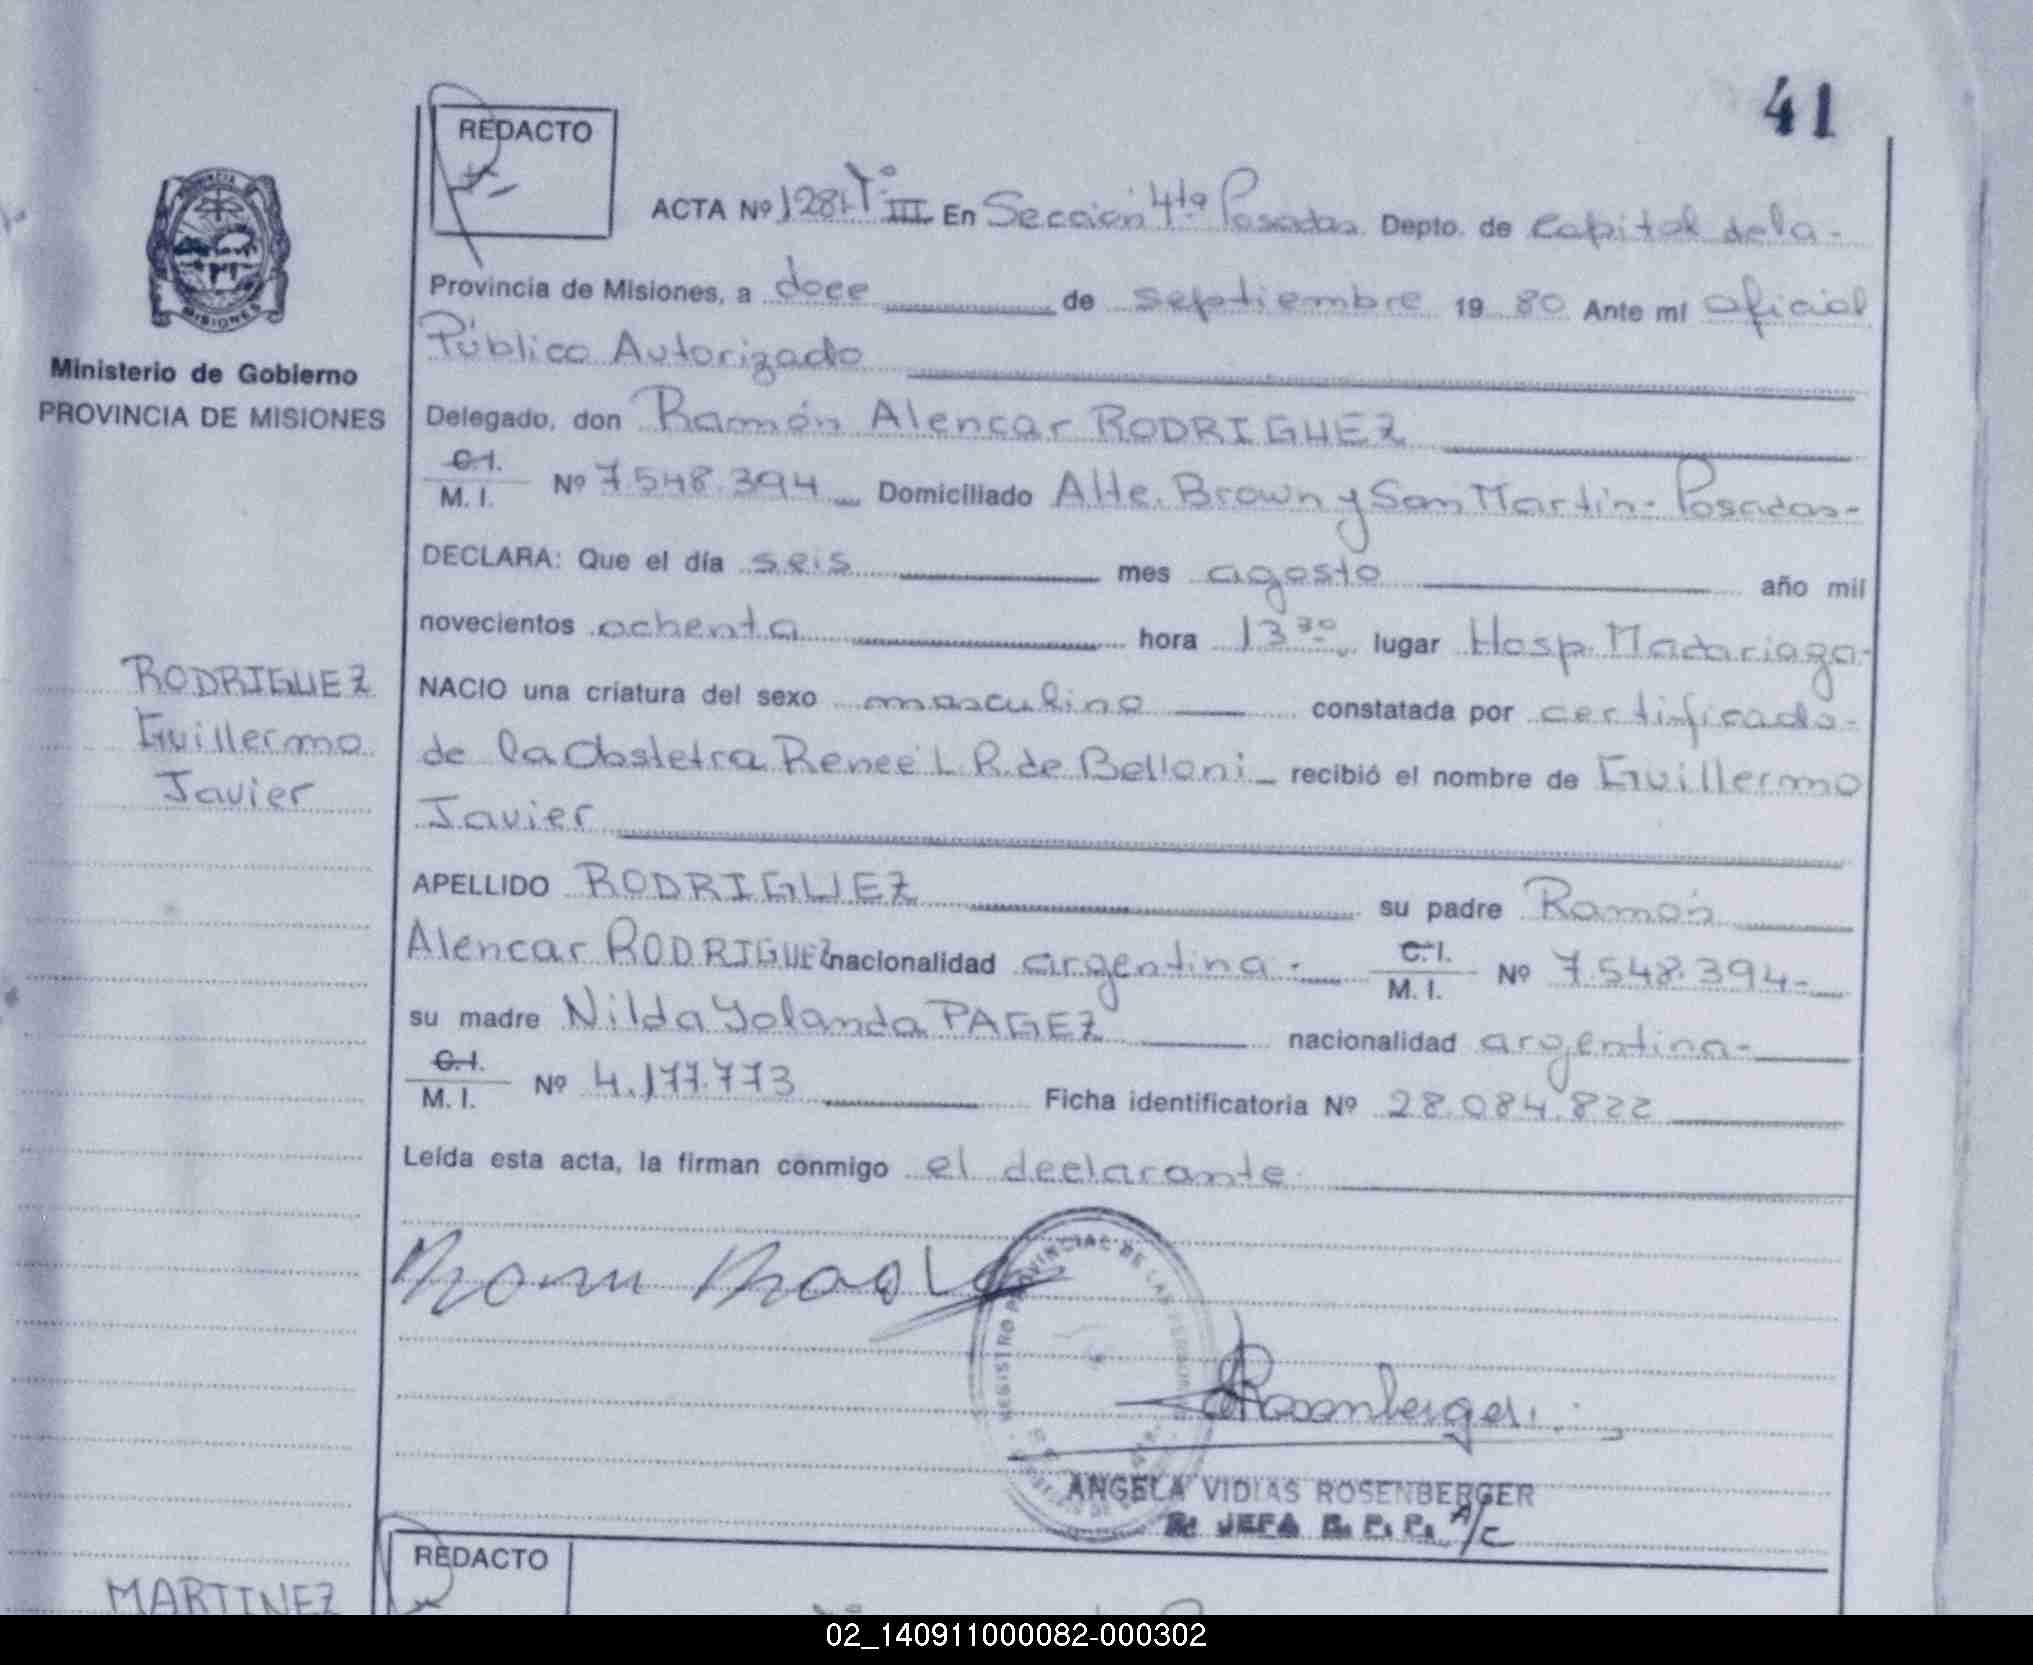 41
REDACTO
ACTA Nº 1281 Tº III En Sección 4ta Posadas Depto. de Capital de la -
Provincia de Misiones, a doce de septiembre 19 80 Ante mi Oficial
Público Autorizado
Delegado, don Ramón Alencar RODRIGUEZ
C.I.
M. I. Nº 7.548.394 Domiciliado Alte. Brown y San Martín - Posadas -
DECLARA: Que el día seis mes agosto año mil
novecientos ochenta hora 13 30 lugar Hosp. Madariaga -
NACIO una criatura del sexo masculino constatada por certificado -
de la Obstetra Renee L. R. de Belloni recibió el nombre de Guillermo
Javier
APELLIDO RODRIGUEZ su padre Ramón
Alencar RODRIGUEZ nacionalidad argentina - C.I.
M. I. Nº 7.548.394 -
su madre Nilda Yolanda PAGEZ nacionalidad argentina -
C.I.
M. I. Nº 4.177.773 Ficha identificatoria Nº 28.084.822
Leída esta acta, la firman conmigo el declarante
PROVINCIA DE
MISIONES
Ministerio de Gobierno
PROVINCIA DE MISIONES
RODRIGUEZ
Guillermo
Javier
REGISTRO PROVINCIAL DE LAS PERSONAS
Rosenberger
ANGELA VIDIAS ROSENBERGER
JEFA A/C
REDACTO
MARTINEZ
02_140911000082-000302